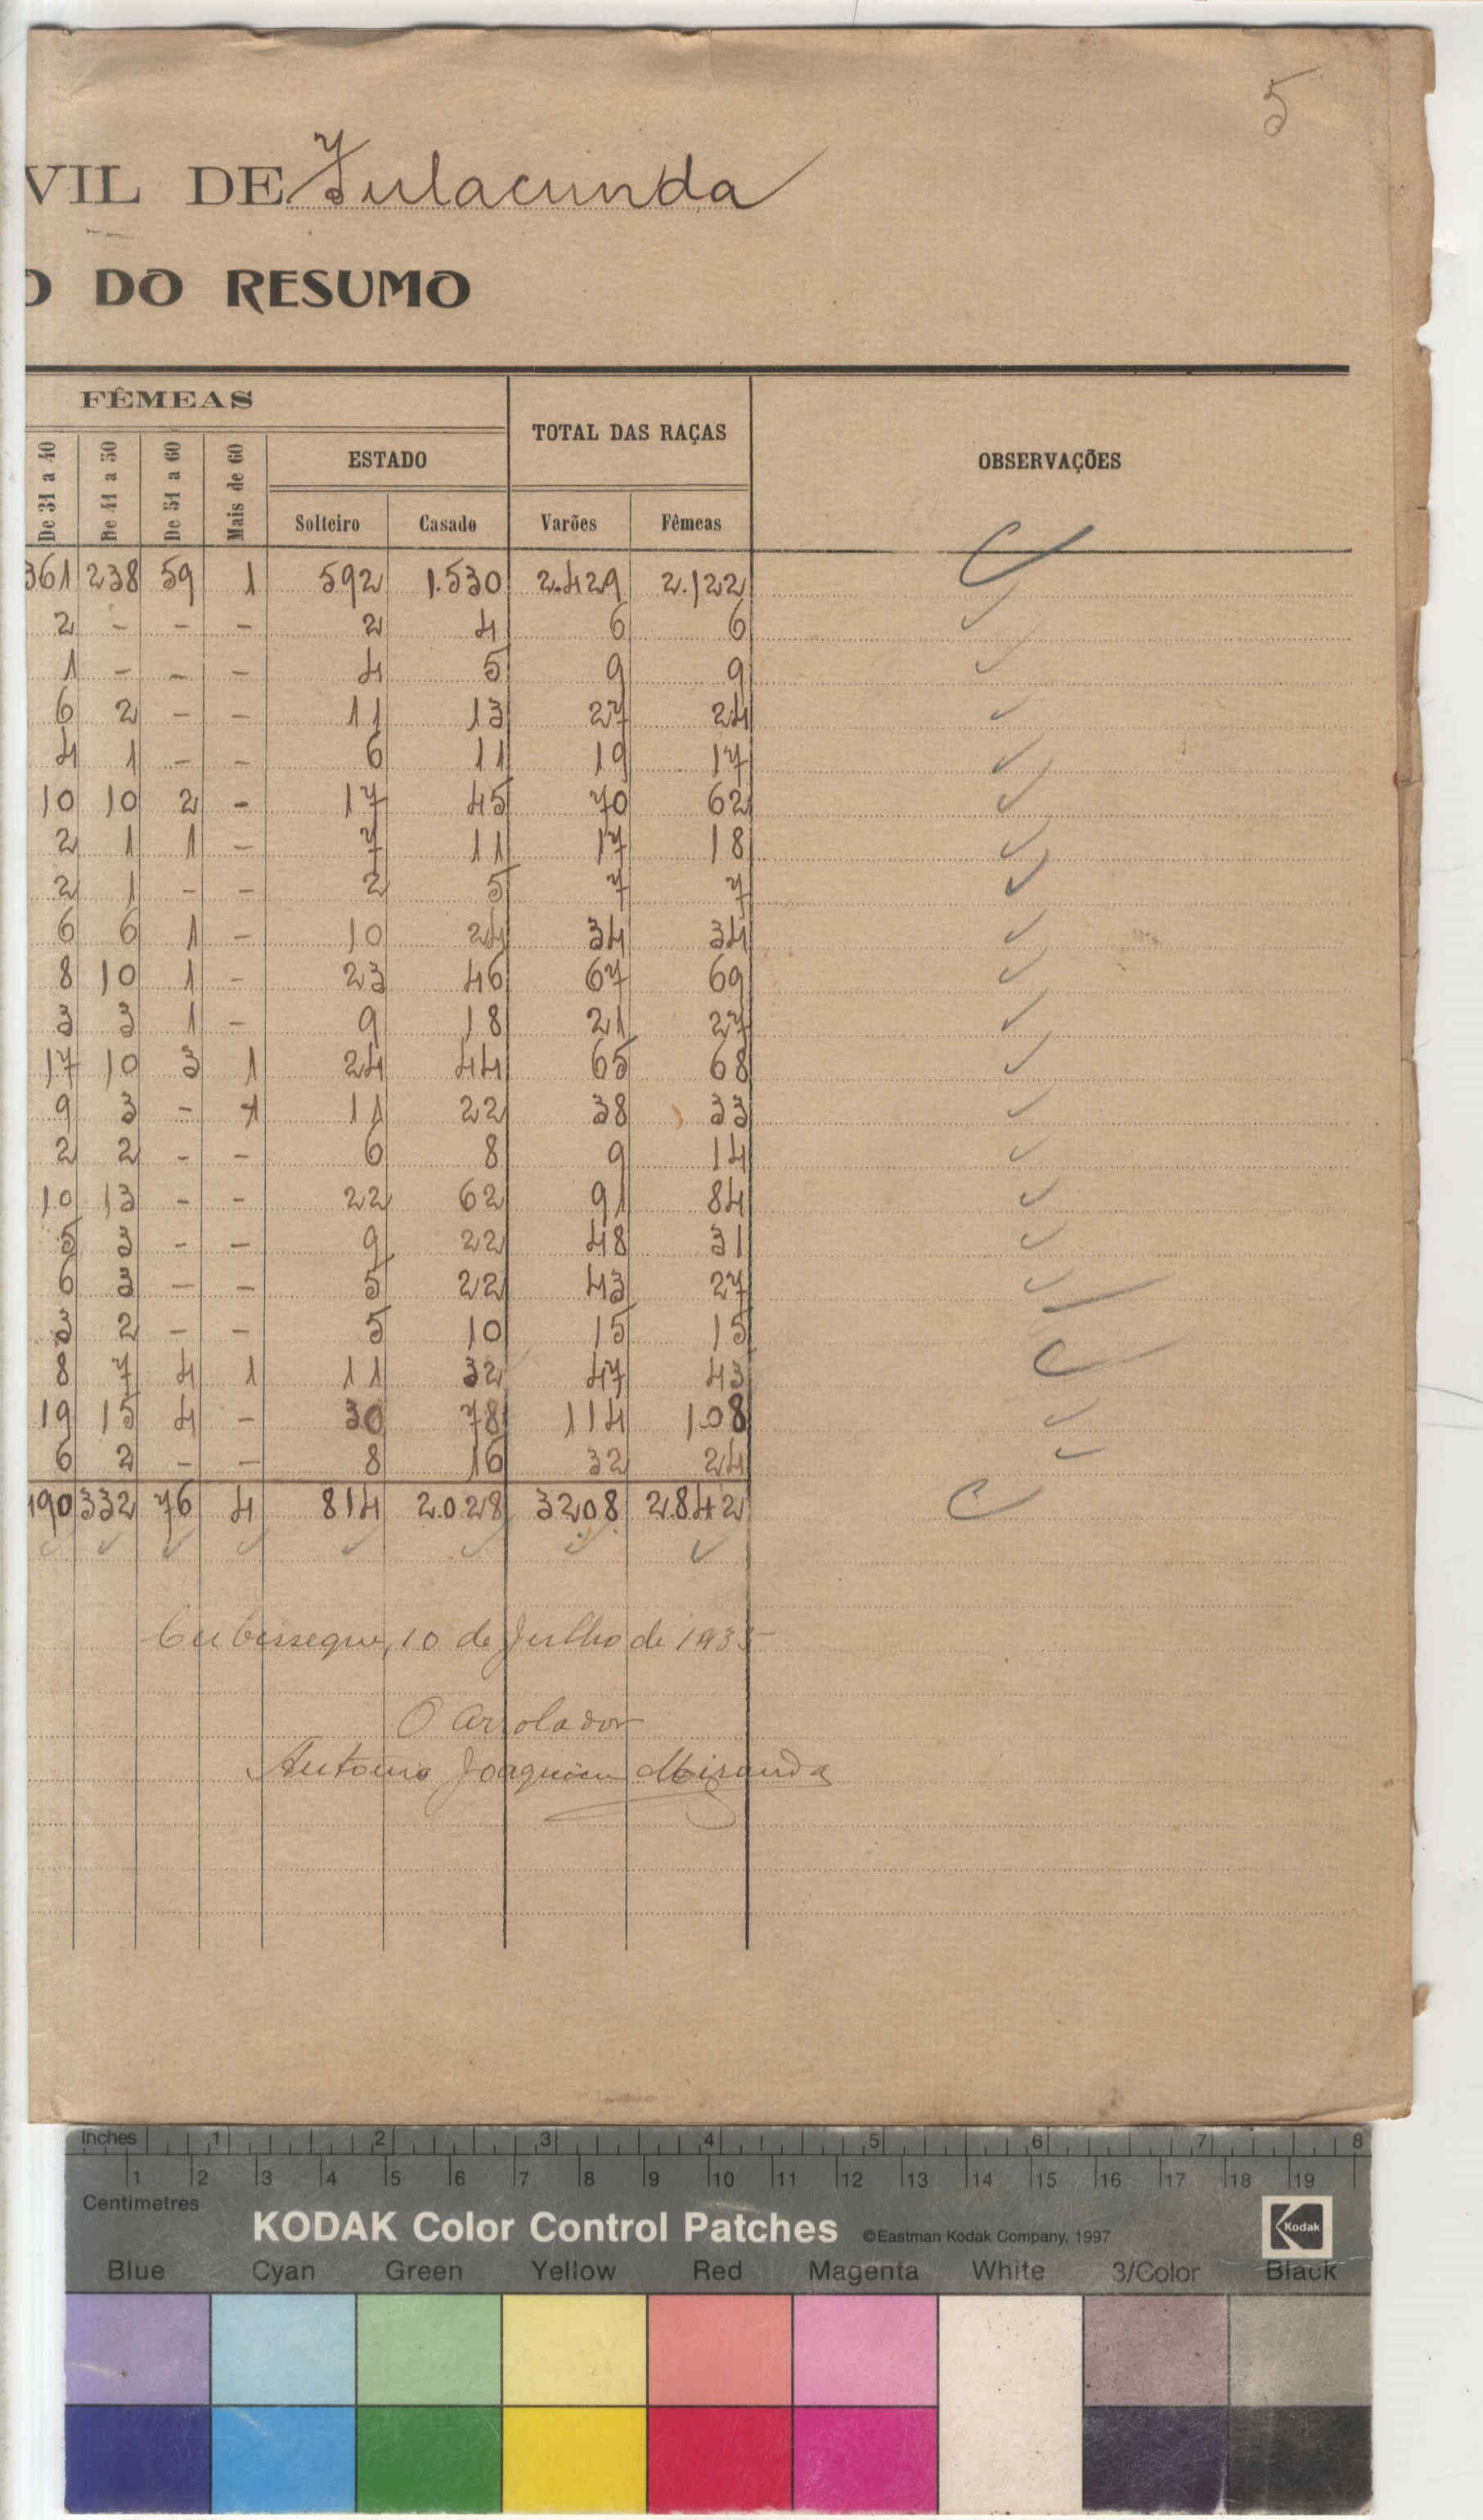 5
VIL DE Fulacunda
O DO RESUMO
FÊMEAS
TOTAL DAS RAÇAS
OBSERVAÇÕES
De 31 a 40 De 41 a 50 De 51 a 60 Mais de 60 ESTADO
Solteiro Casado Varões Fêmeas
361 238 59 1 592 1.530 2.429 2.122
2 - - - 2 4 6 6
1 - - - 4 5 9 9
6 2 - - 11 13 27 24
4 1 - - 6 11 19 17
10 10 2 - 17 45 70 62
2 1 1 - 7 11 17 18
2 1 - - 2 5 7 7
6 6 1 - 10 24 34 34
8 10 1 - 23 46 67 69
3 3 1 - 9 18 21 27
17 10 3 1 24 44 65 68
9 3 - 1 11 22 38 33
2 2 - - 6 8 9 14
10 13 - - 22 62 91 84
5 3 - - 9 22 48 31
6 3 - - 5 22 43 27
3 2 - - 5 10 15 15
8 7 4 1 11 32 47 43
19 15 4 - 30 78 114 108
6 2 - - 8 16 32 24
490 332 76 4 814 2.028 3208 2.842
10 de Julho de 1935
O Arrolador
Antonio Joaquim Miranda
Inches 1 2 3 4 5 6 7 8
1 2 3 4 5 6 7 8 9 10 11 12 13 14 15 16 17 18 19
Centimetres
KODAK Color Control Patches ©Eastman Kodak Company, 1997 Kodak
Blue Cyan Green Yellow Red Magenta White 3/Color Black